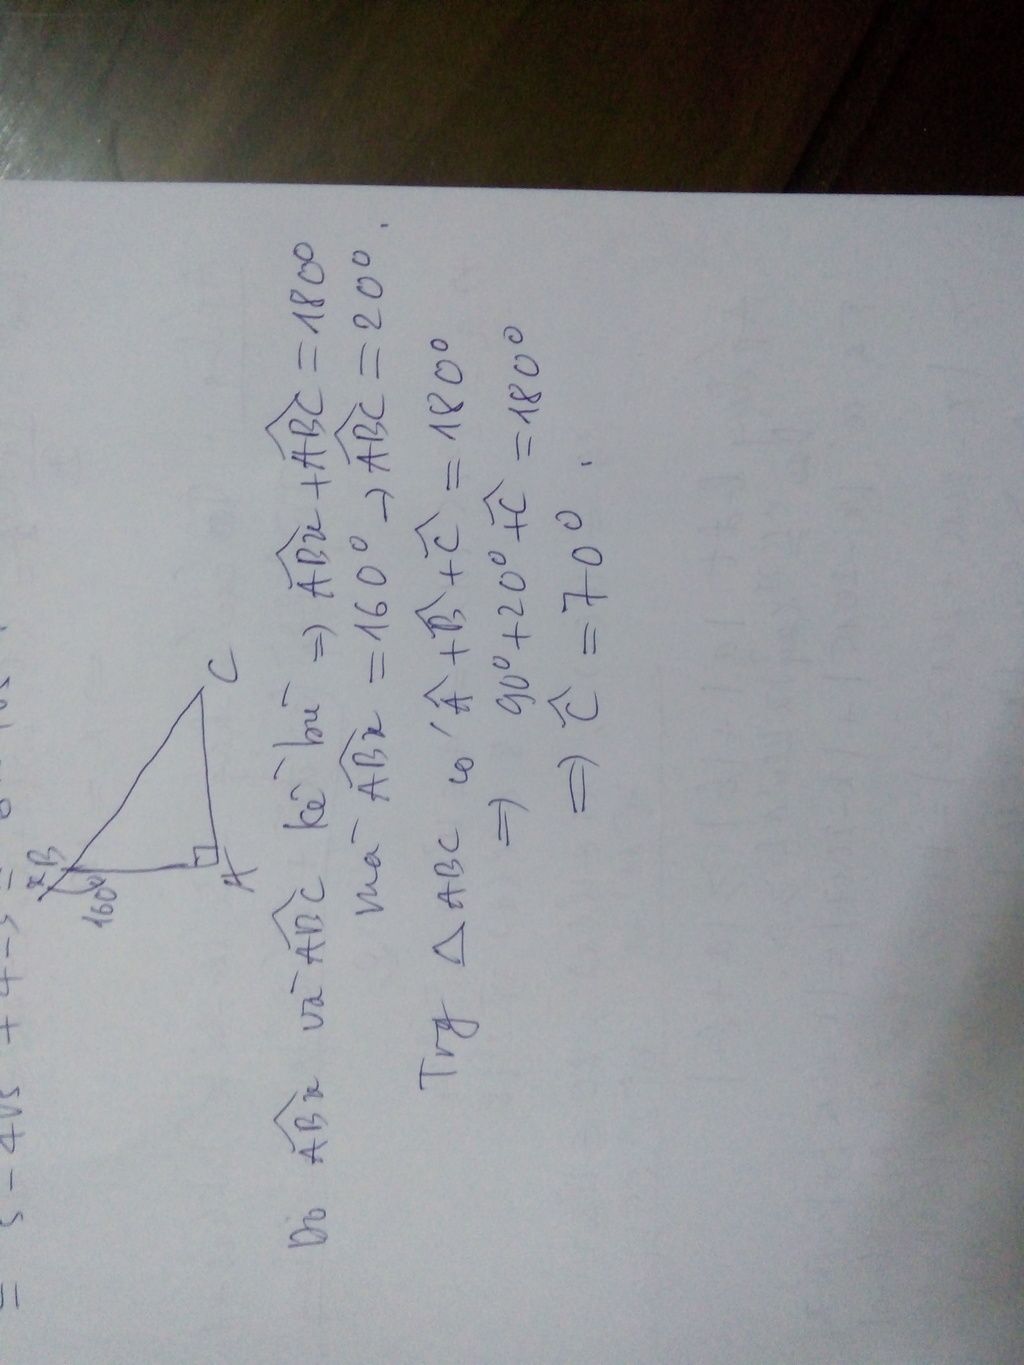 = 5 - 4√5 + 4 - 5 =
x B
160°
A
C
Do ABx và ABC kề bù => ABx + ABC = 180°
mà ABx = 160° → ABC = 20°.
Trg △ABC có A + B + C = 180°
=> 90° + 20° + C = 180°
=> C = 70°.